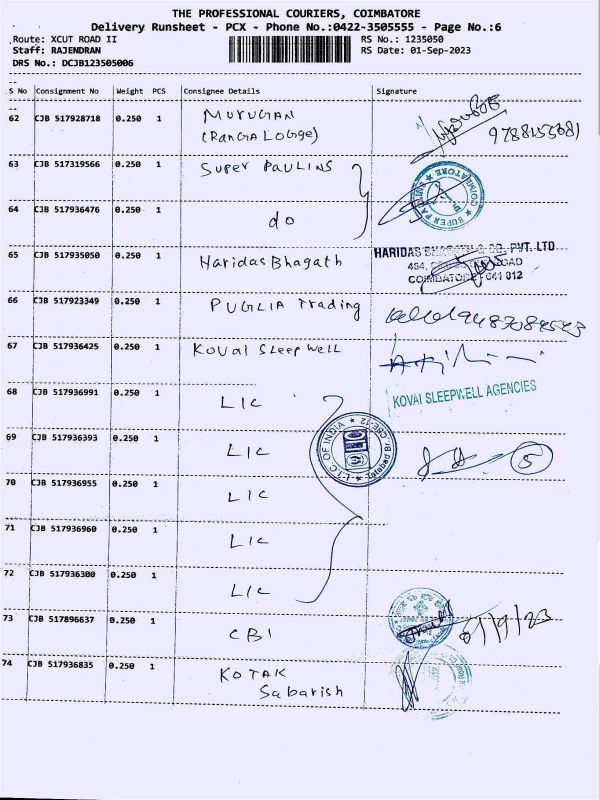 THE PROFESSIONAL COURIERS, COIMBATORE
Delivery Runsheet - PCX - Phone No.:0422-3505555 - Page No.:6
Route: XCUT ROAD II RS No.: 1235050
Staff: RAJENDRAN RS Date: 01-Sep-2023
DRS No.: DCJB123505006
S No Consignment No Weight PCS Consignee Details Signature
62 CJB 517928718 0.250 1 MURUGAN
(Ranga Lodge) 9788153681
63 CJB 517319566 0.250 1 Super PAULINS
SUPER COIMBATORE
64 CJB 517936476 0.250 1 do
65 CJB 517935050 0.250 1 Haridas Bhagath HARIDAS BHAGATH & CO. PVT. LTD
COIMBATORE - 641 012
66 CJB 517923349 0.250 1 PUGLIA Trading
67 CJB 517936425 0.250 1 KOVAI SLEEPWELL
KOVAI SLEEPWELL AGENCIES
68 CJB 517936991 0.250 1 LIC
L.I.C. OF INDIA
69 CJB 517936393 0.250 1 LIC 5
70 CJB 517936955 0.250 1 LIC
71 CJB 517936960 0.250 1 LIC
72 CJB 517936300 0.250 1 LIC
73 CJB 517896637 0.250 1 CBI
74 CJB 517936835 0.250 1 KOTAK
Sabarish